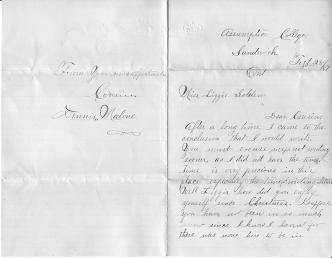 From Your
Cousin
Dennis Malone
Assumption College
Sandwich
Ont
Miss Lizzie Golden
Dear Cousin
After a long time I came to the
conclusion that I would write.
You must excuse me for not writing
sooner as I did not have the time.
Time is very precious in this
place especially the
Well Lizzie how did you enjoy
yourself since Christmas. I suppose
you have not been in so much
since I know I haven't for
there was none here to be in